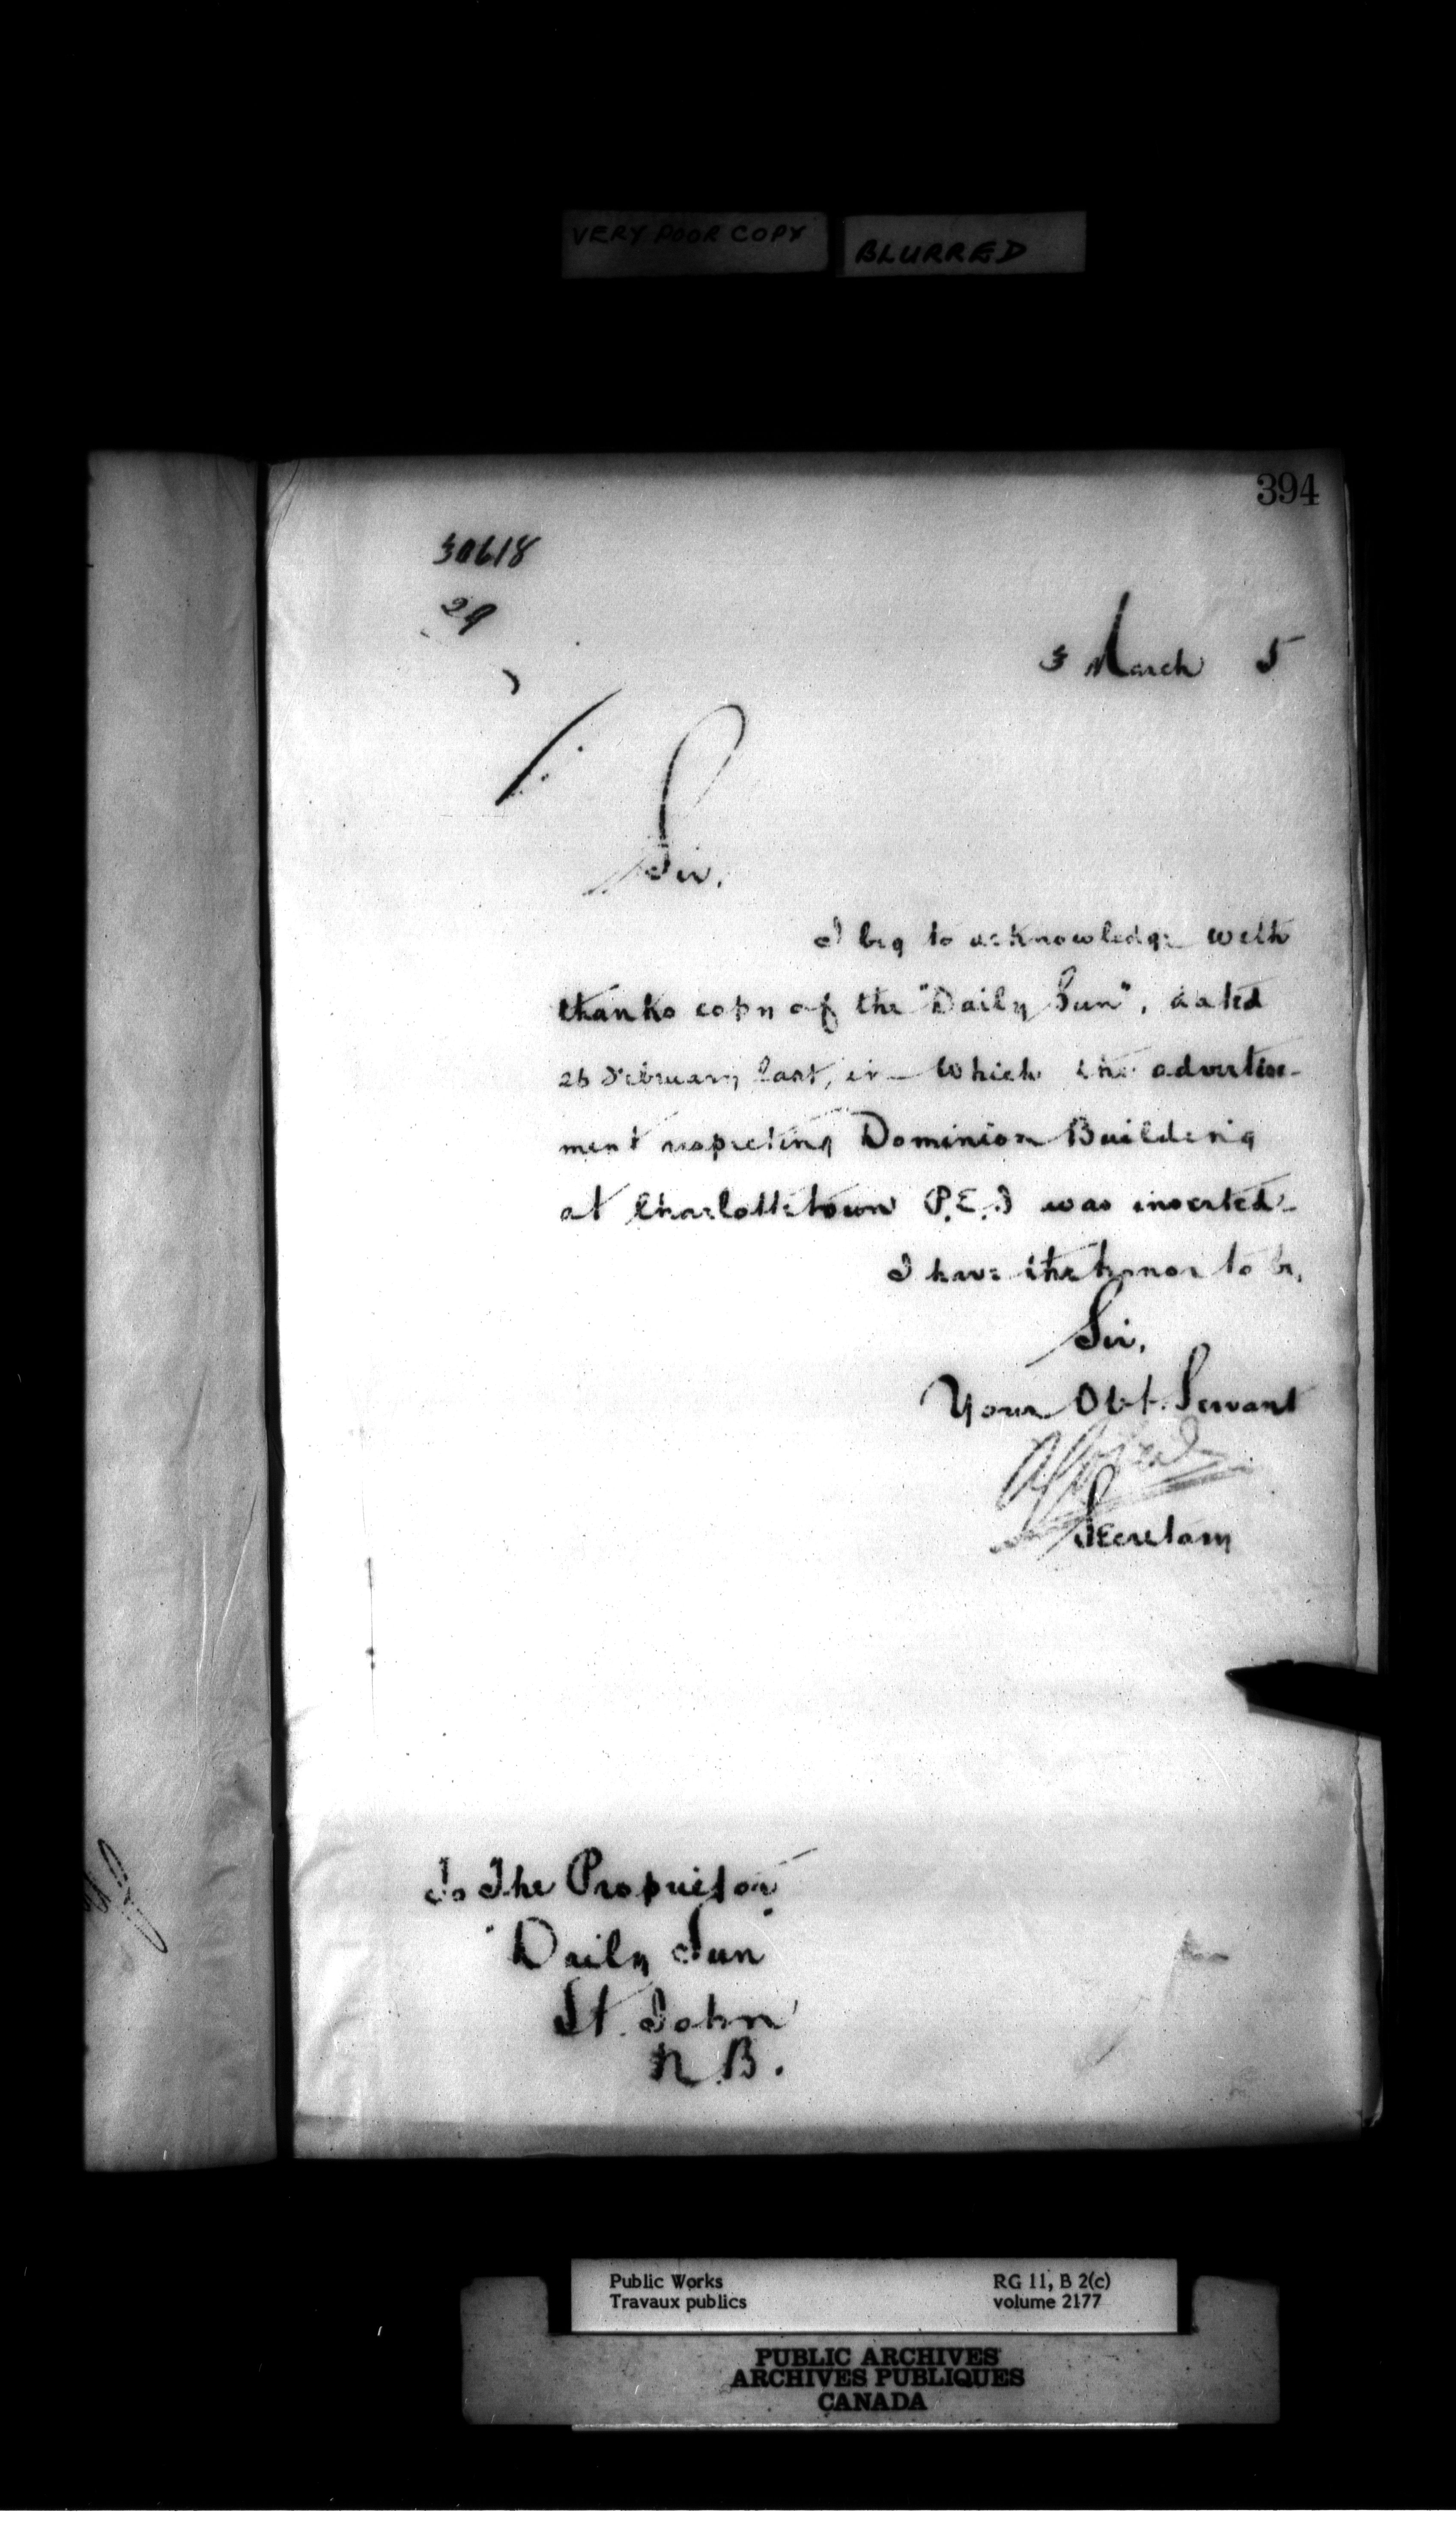 VERY POOR COPY
BLURRED
394
30618
29
3 March 5
Sir,
I beg to acknowledge with
thanks copy of the "Daily Sun", dated
26 February last, in which the advertise-
ment respecting Dominion Building
at Charlottetown P.E.I was inserted-
I have the honor to be,
Sir,
Your Obt. Servant
Secretary
To The Proprietor
"Daily Sun"
St. John
N.B.
Public Works
Travaux publics
RG 11, B 2(c)
volume 2177
PUBLIC ARCHIVES
ARCHIVES PUBLIQUES
CANADA